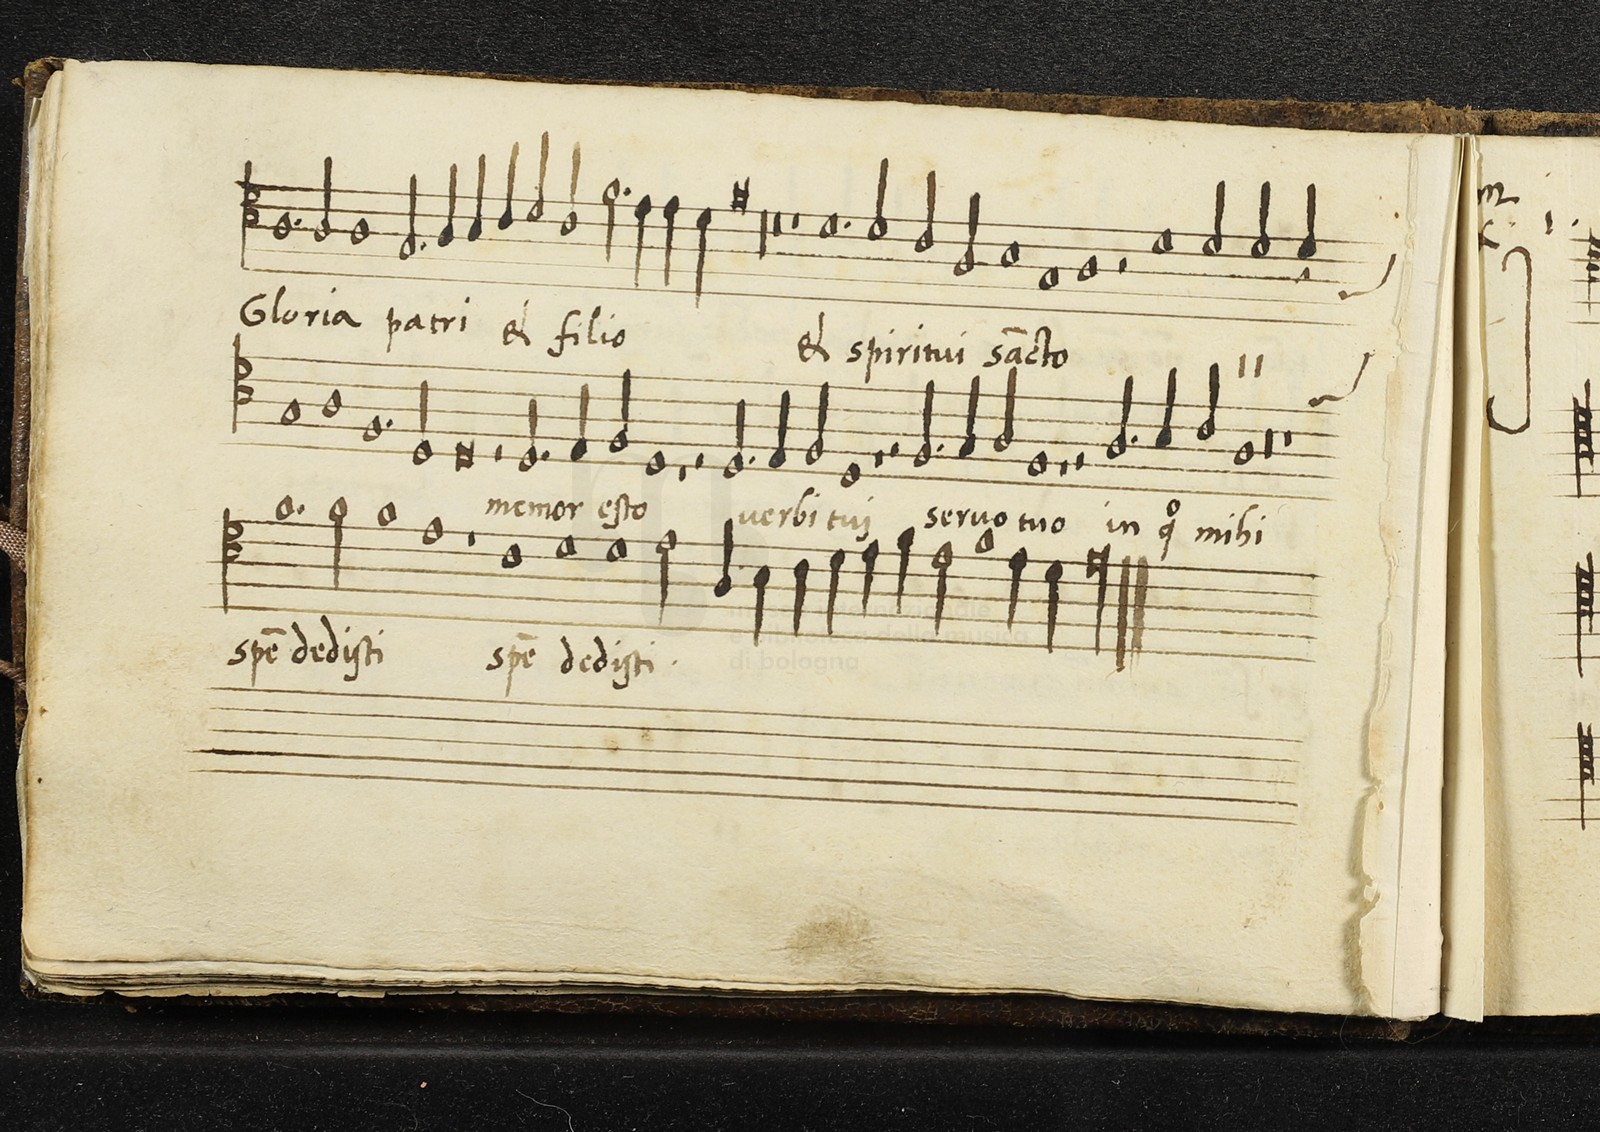 Gloria patri & filio & spiritui sācto
memor esto verbi tui servo tuo in qͦ mihi
spē dedisti spē dedisti .
museo internazionale
e biblioteca della musica
di bologna